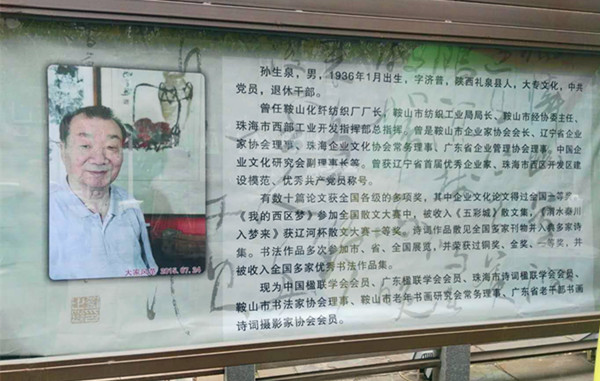 孙生泉，男，1936年1月出生，字济普，陕西礼泉县人，大专文化，中共
党员，退休干部。
曾任鞍山化纤纺织厂厂长、鞍山市纺织工业局局长、鞍山市经协委主任、
珠海市西部工业开发指挥部总指挥。曾是鞍山市企业家协会会长、辽宁省企业
家协会理事、珠海企业文化协会常务理事、广东省企业管理协会理事。中国企
业文化研究会副理事长等。曾获辽宁省首届优秀企业家、珠海市西区开发区建
设模范、优秀共产党员称号。
有数十篇论文获全国各级的多项奖，其中企业文化论文得过全国一等奖。
《我的西区梦》参加全国散文大赛中，被收入《五彩城》散文集，《渭水秦川
入梦来》获辽河杯散文大赛一等奖。诗词作品散见全国多家刊物并入典多家诗
集。书法作品多次参加市、省、全国展览，并荣获过铜奖、金奖、一等奖，并
被收入全国多家优秀书法作品集。
现为中国楹联学会会员、广东楹联学会会员、珠海市诗词楹联学会会员、
鞍山市书法家协会理事、鞍山市老年书画研究会常务理事、广东省老干部书画
诗词摄影家协会会员。
2015.07.24